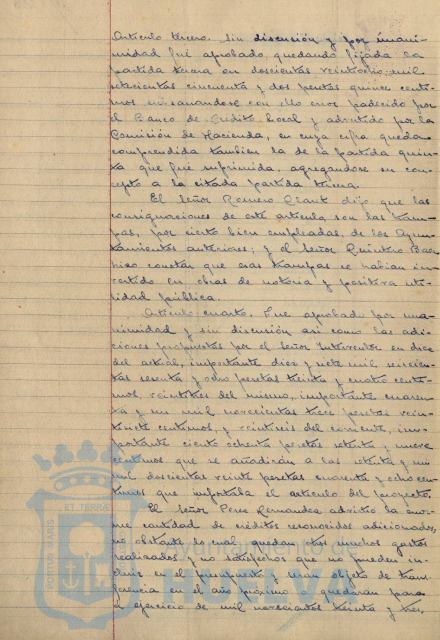 Artículo tercero. Sin discusión y por unani-
midad fué aprobado, quedando fijada la
partida tercera en doscientas veintiocho mil
setecientas cincuenta y dos pesetas quince cénti-
mos subsanandose con ello error padecido por
el Banco de Crédito Local y advertido por la
Comisión de Hacienda, en cuya cifra queda
comprendida tambien la de la partida quin-
ta que fué suprimida, agregandose su con-
cepto a la citada partida tercera.
El Señor Romero Clant dijo que las
consignaciones de este articulo son las tram-
pas, por cierto bien empleadas, de los Ayun-
tamientos anteriores; y el Señor Quintero Baez
hizo constar que esas trampas se habian in-
vertido en obras de notoria y positiva uti-
lidad pública.
Artículo cuarto. Fue aprobado por una-
nimidad y sin discusión asi como las adi-
ciones propuestas por el Señor Interventor en doce
del actual, importante diez y siete mil seiscien-
tas setenta y ocho pesetas treinta y cuatro centi-
mos, veintitres del mismo, importante cuaren-
ta y un mil novecientas trece pesetas vein-
tisiete centimos, y veintiseis del corriente, im-
portante ciento ochenta pesetas setenta y nueve
centimos que se añadirán a las setenta y un
mil doscientas veinte pesetas cuarenta y ocho cen-
timos que importaba el articulo del proyecto.
El Señor Perez Fernandez advirtio la enor-
me cantidad de créditos reconocidos adicionados,
no obstante lo cual quedan otros muchos gastos
realizados y no satisfechos que no pueden in-
cluirse en el presupuesto y seran objeto de trans-
ferencia en el año próximo o quedarán para
el ejercicio de mil novecientos treinta y tres,
PORTUS MARIS ET TERRAE
Ayuntamiento de
HUELVA